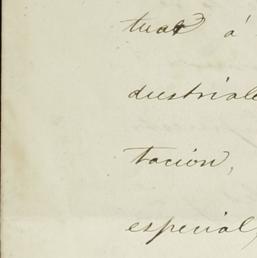 tuar á
dustriale
tación,
especial,